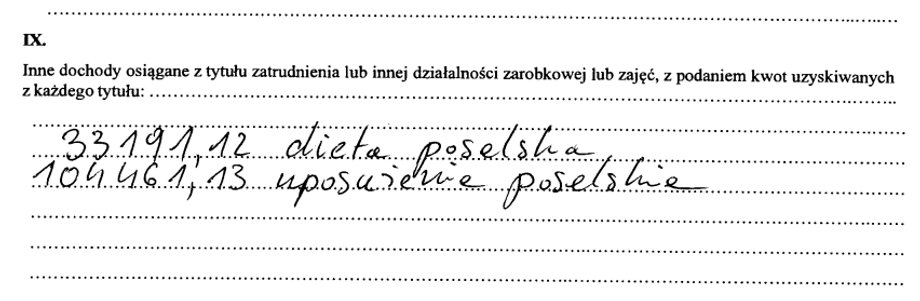 IX.
Inne dochody osiągane z tytułu zatrudnienia lub innej działalności zarobkowej lub zajęć, z podaniem kwot uzyskiwanych
z każdego tytułu:
33191,12 dieta poselska
104461,13 uposażenie poselskie